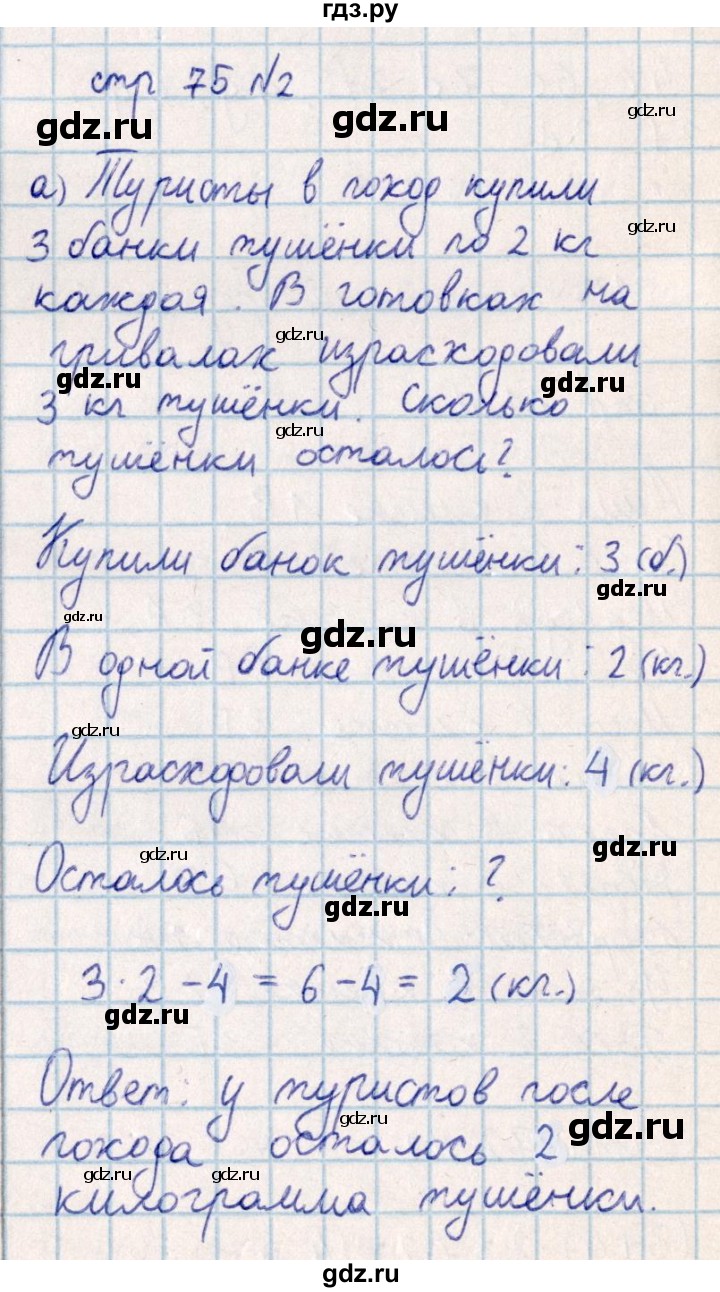 гдз.ру
стр 75 №2
gdz.ru gdz.ru gdz.ru
а) Туристы в поход купили
3 банки тушёнки по 2 кг
gdz.ru
каждая. В готовках на
gdz.ru
привалах израсходовали
gdz.ru gdz.ru
3 кг тушёнки. Сколько
gdz.ru
тушёнки осталось?
Купили банок тушёнки: 3 (б.)
gdz.ru
gdz.ru gdz.ru
В одной банке тушёнки: 2 (кг.)
gdz.ru
Израсходовали тушёнки: 4 (кг.)
gdz.ru gdz.ru
Осталось тушёнки: ?
gdz.ru
3 · 2 - 4 = 6 - 4 = 2 (кг.)
gdz.ru
Ответ: у туристов после
gdz.ru gdz.ru
похода осталось 2
gdz.ru gdz.ru
килограмма тушёнки.
gdz.ru